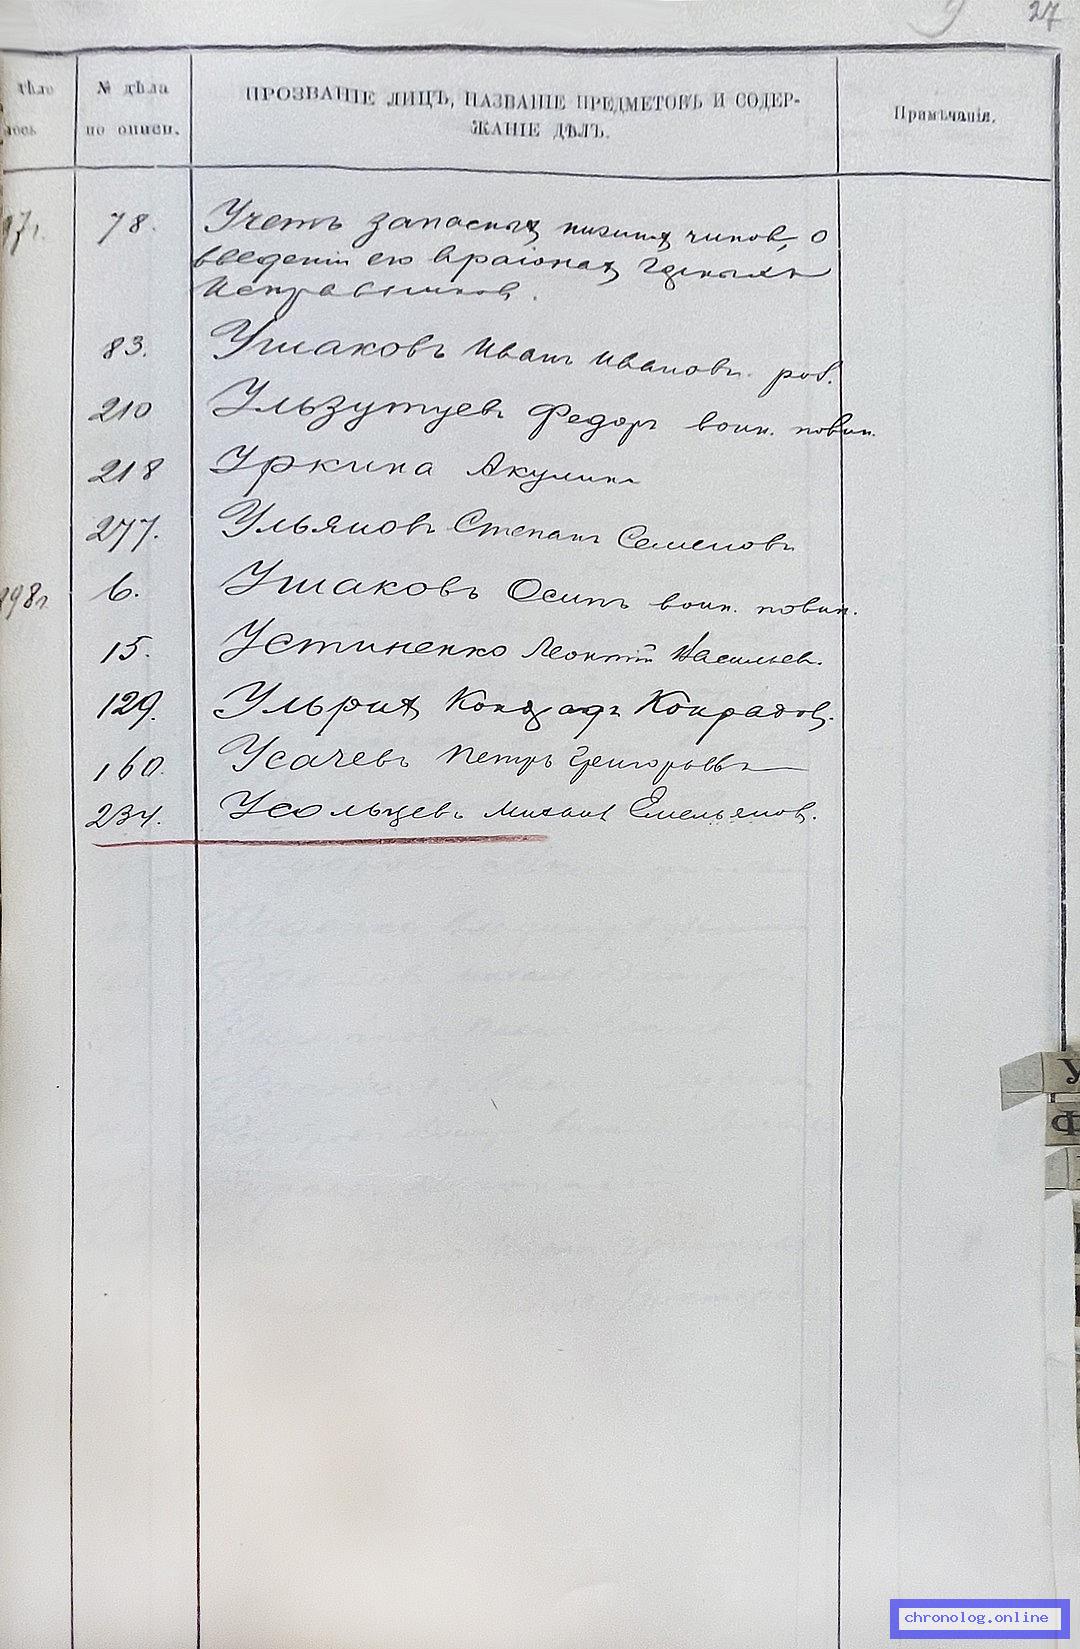 У 27
дѣло
лось
№ дѣла
по описи.
ПРОЗВАНІЕ ЛИЦЪ, НАЗВАНІЕ ПРЕДМЕТОВЪ И СОДЕР-
ЖАНІЕ ДѢЛЪ.
Примѣчанія.
97г. 78. Учетъ запасныхъ нижнихъ чиновъ, о
введеніи его въ районахъ
Исправниковъ.
83. Ушаковъ Иванъ Ивановъ.
210 Ульзутуевъ Федоръ воин. повин.
218 Уркина Акулина
277. Ульяновъ Степанъ Семеновъ
898г 6. Ушаковъ Осипъ воин. повин.
15. Устиненко Леонтій Васильев.
129. Ульрихъ Кондратъ Конрадов.
160. Усачевъ Петръ Григорьевъ
234. Усольцевъ Михаил Емельянов.
У
Ф
chronolog.online